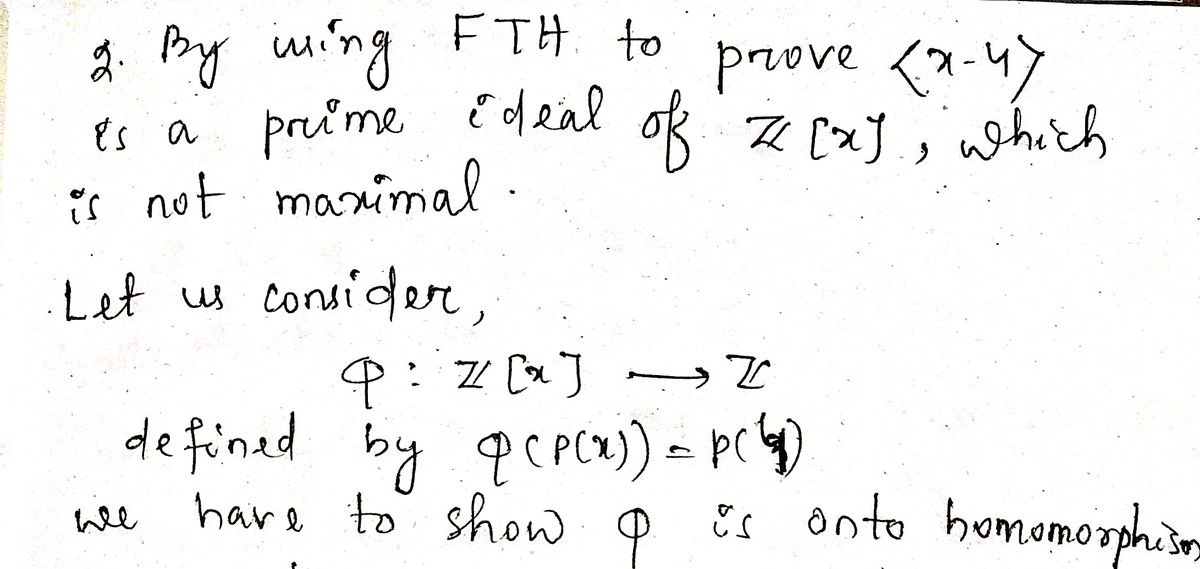 2. By using FTH. to prove <x-4>
is a prime ideal of ℤ[x], which
is not maximal.
Let us consider,
φ: ℤ[x] ⟶ ℤ
defined by φ(P(x)) = P(4)
we have to show φ is onto homomorphism